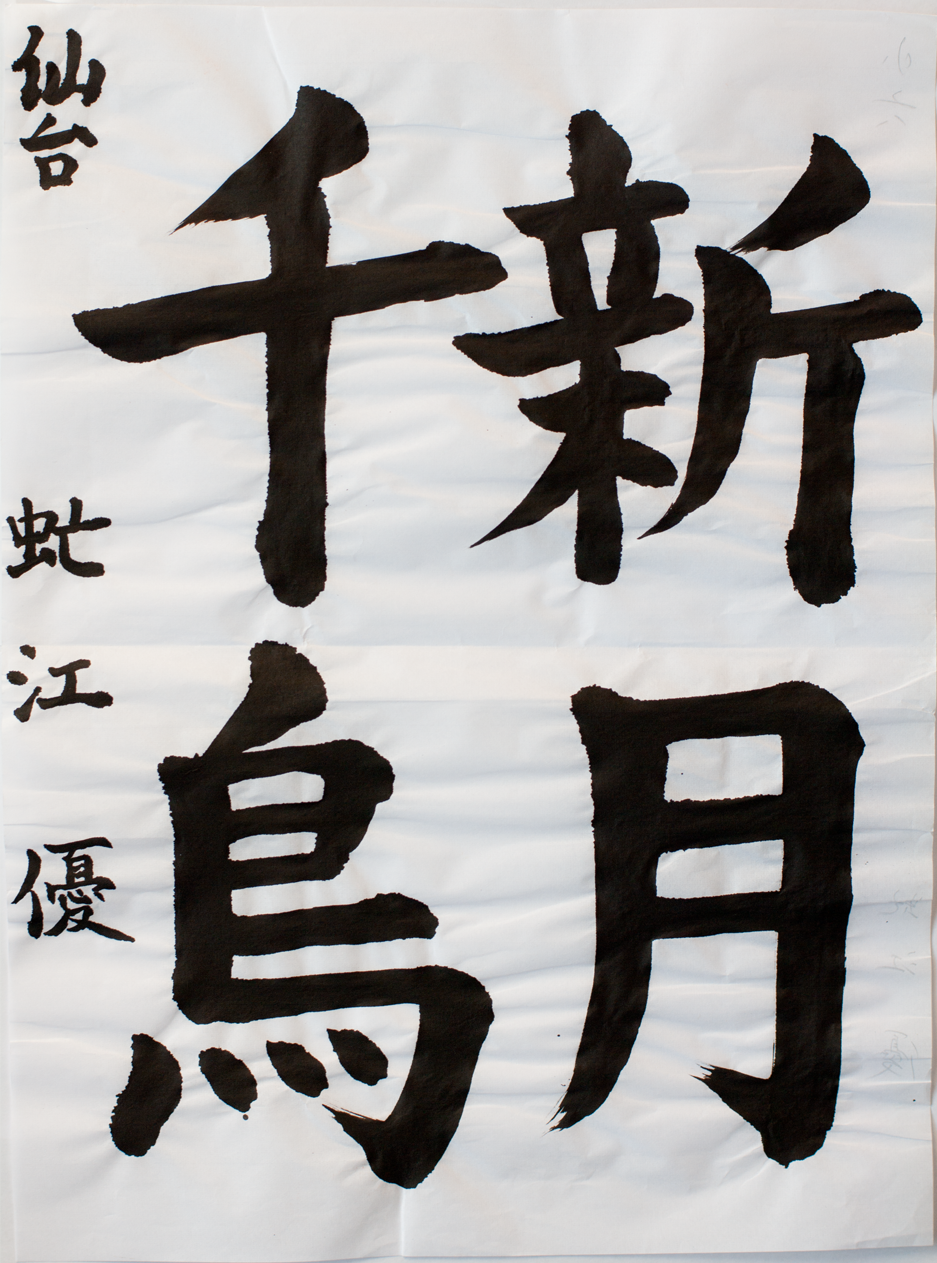 新月
千鳥
仙台 虻江 優